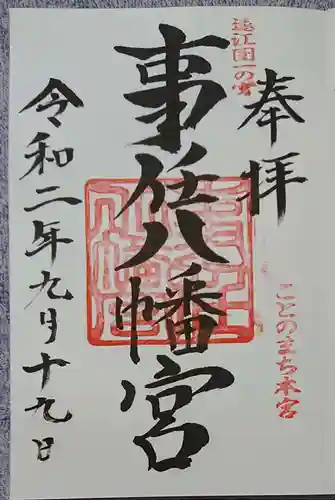 奉拝
遠江国一の宮
ことのまち本宮
事任八幡宮
令和二年九月十九日